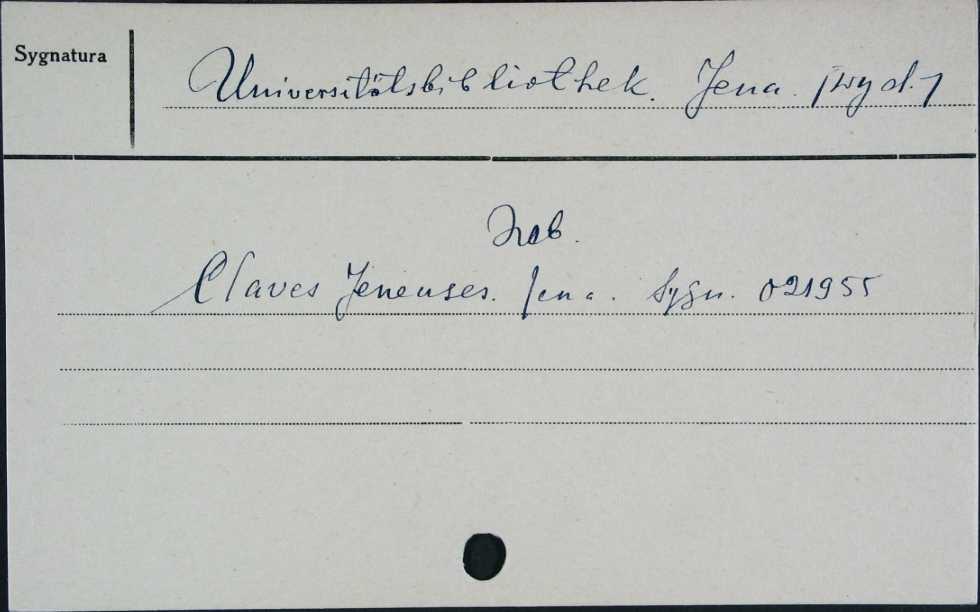 Sygnatura
Universitätsbibliothek. Jena. /wyd./
Zob.
Claves Jenenses. Jena. Sygn. 021955